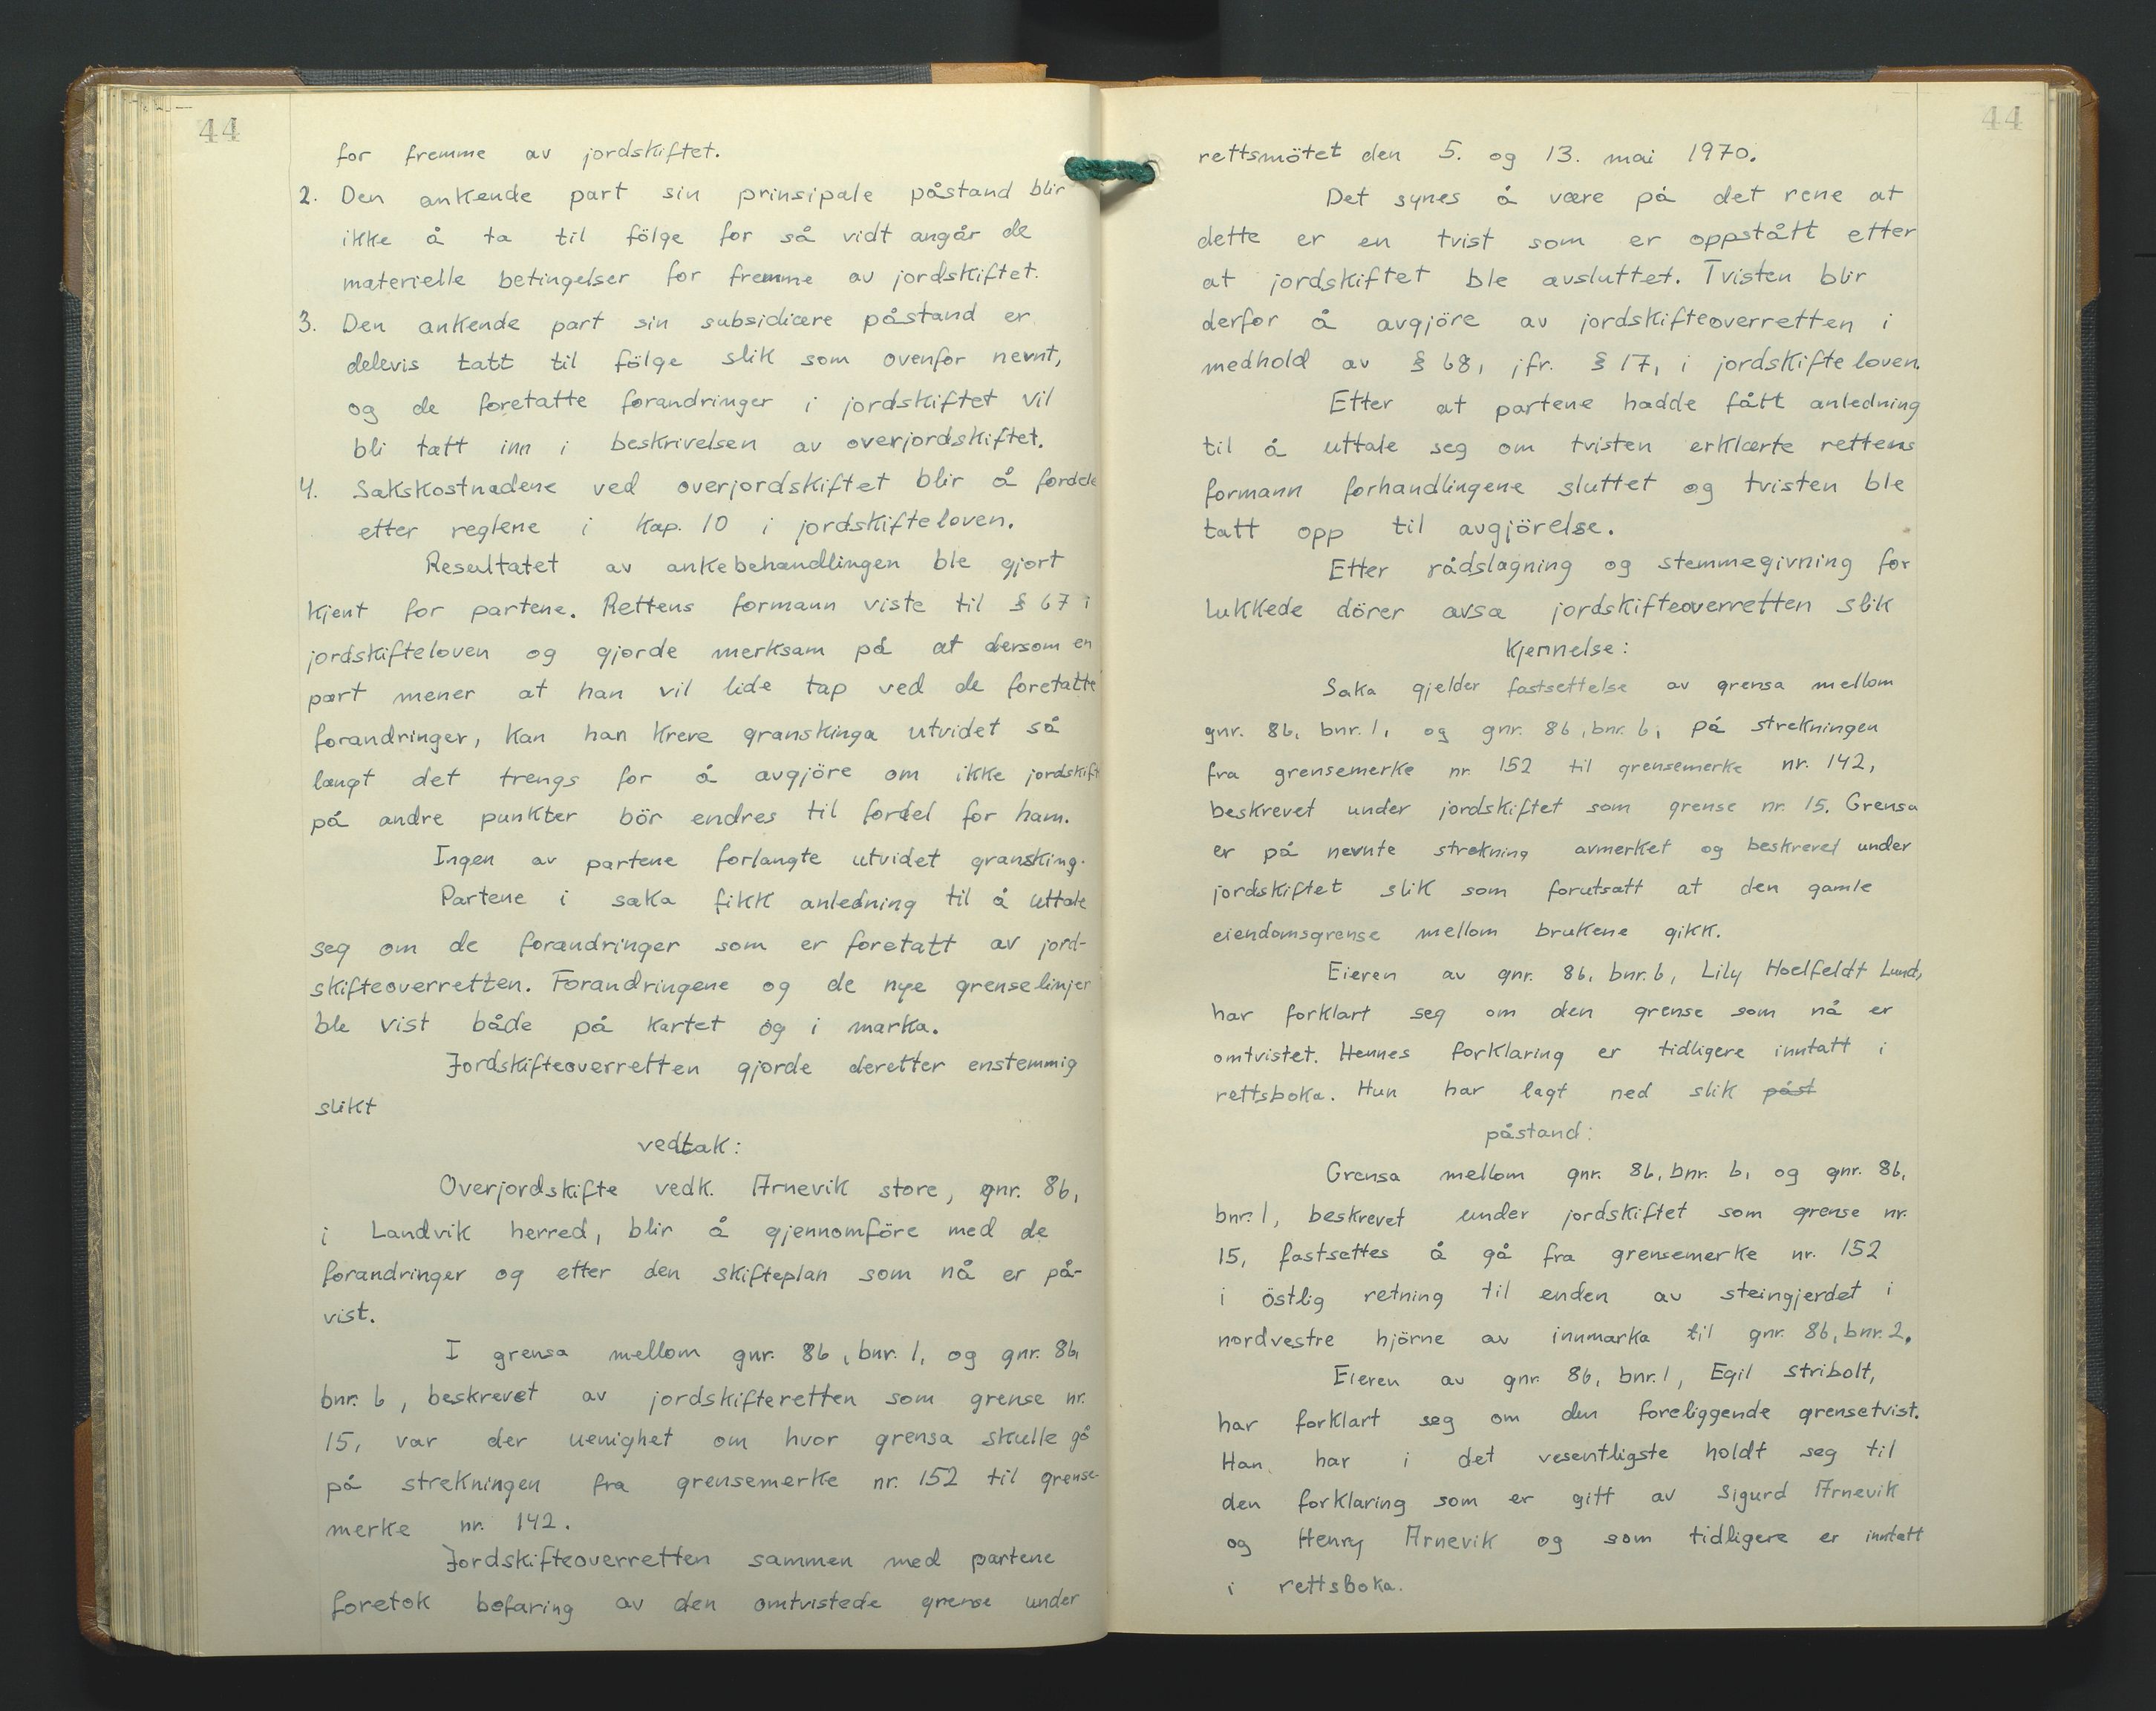 44
for fremme av jordskiftet.
2. Den ankende part sin prinsipale påstand blir
ikke å ta til fölge for så vidt angår de
materielle betingelser for fremme av jordskiftet.
3. Den ankende part sin subsidiære påstand er
delevis tatt til fölge slik som ovenfor nevnt,
og de foretatte forandringer i jordskiftet vil
bli tatt inn i beskrivelsen av overjordskiftet.
4. Sakskostnadene ved overjordskiftet blir å fordele
etter reglene i kap. 10 i jordskifteloven.
Resultatet av ankebehandlingen ble gjort
kjent for partene. Rettens formann viste til § 67 i
jordskifteloven og gjorde merksam på at dersom en
part mener at han vil lide tap ved de foretatte
forandringer, kan han kreve granskinga utvidet så
langt det trengs for å avgjöre om ikke jordskift
på andre punkter bör endres til fordel for ham.
Ingen av partene forlangte utvidet gransking.
Partene i saka fikk anledning til å uttale
seg om de forandringer som er foretatt av jord-
skifteoverretten. Forandringene og de nye grenselinjer
ble vist både på kartet og i marka.
Jordskifteoverretten gjorde deretter enstemmig
slikt
vedtak:
Overjordskifte vedk. Arnevik store, gnr. 86,
i Landvik herred, blir å gjennomföre med de
forandringer og etter den skifteplan som nå er på-
vist.
I grensa mellom gnr. 86, bnr. 1, og gnr. 86,
bnr. 6, beskrevet av jordskifteretten som grense nr.
15, var der uenighet om hvor grensa skulle gå
på strekningen fra grensemerke nr. 152 til grense-
merke nr. 142.
Jordskifteoverretten sammen med partene
foretok befaring av den omtvistede grense under
44
rettsmötet den 5. og 13. mai 1970.
Det synes å være på det rene at
dette er en tvist som er oppstått etter
at jordskiftet ble avsluttet. Tvisten blir
derfor å avgjöre av jordskifteoverretten i
medhold av § 68, jfr. § 17, i jordskifteloven.
Etter at partene hadde fått anledning
til å uttale seg om tvisten erklærte rettens
formann forhandlingene sluttet og tvisten ble
tatt opp til avgjörelse.
Etter rådslagning og stemmegivning for
lukkede dörer avsa jordskifteoverretten slik
kjennelse:
Saka gjelder fastsettelse av grensa mellom
gnr. 86, bnr. 1, og gnr. 86, bnr. 6, på strekningen
fra grensemerke nr 152 til grensemerke nr. 142,
beskrevet under jordskiftet som grense nr. 15. Grensa
er på nevnte strekning avmerket og beskrevet under
jordskiftet slik som forutsatt at den gamle
eiendomsgrense mellom brukene gikk.
Eieren av gnr. 86, bnr. 6, Lily Hoelfeldt Lund,
har forklart seg om den grense som nå er
omtvistet. Hennes forklaring er tidligere inntatt i
rettsboka. Hun har lagt ned slik påst
påstand:
Grensa mellom gnr. 86, bnr. 6, og gnr. 86,
bnr. 1, beskrevet under jordskiftet som grense nr.
15, fastsettes å gå fra grensemerke nr. 152
i östlig retning til enden av steingjerdet i
nordvestre hjörne av innmarka til gnr. 86, bnr. 2.
Eieren av gnr. 86, bnr. 1, Egil Stribolt,
har forklart seg om den foreliggende grensetvist.
Han har i det vesentligste holdt seg til
den forklaring som er gitt av Sigurd Arnevik
og Henry Arnevik og som tidligere er inntatt
i rettsboka.